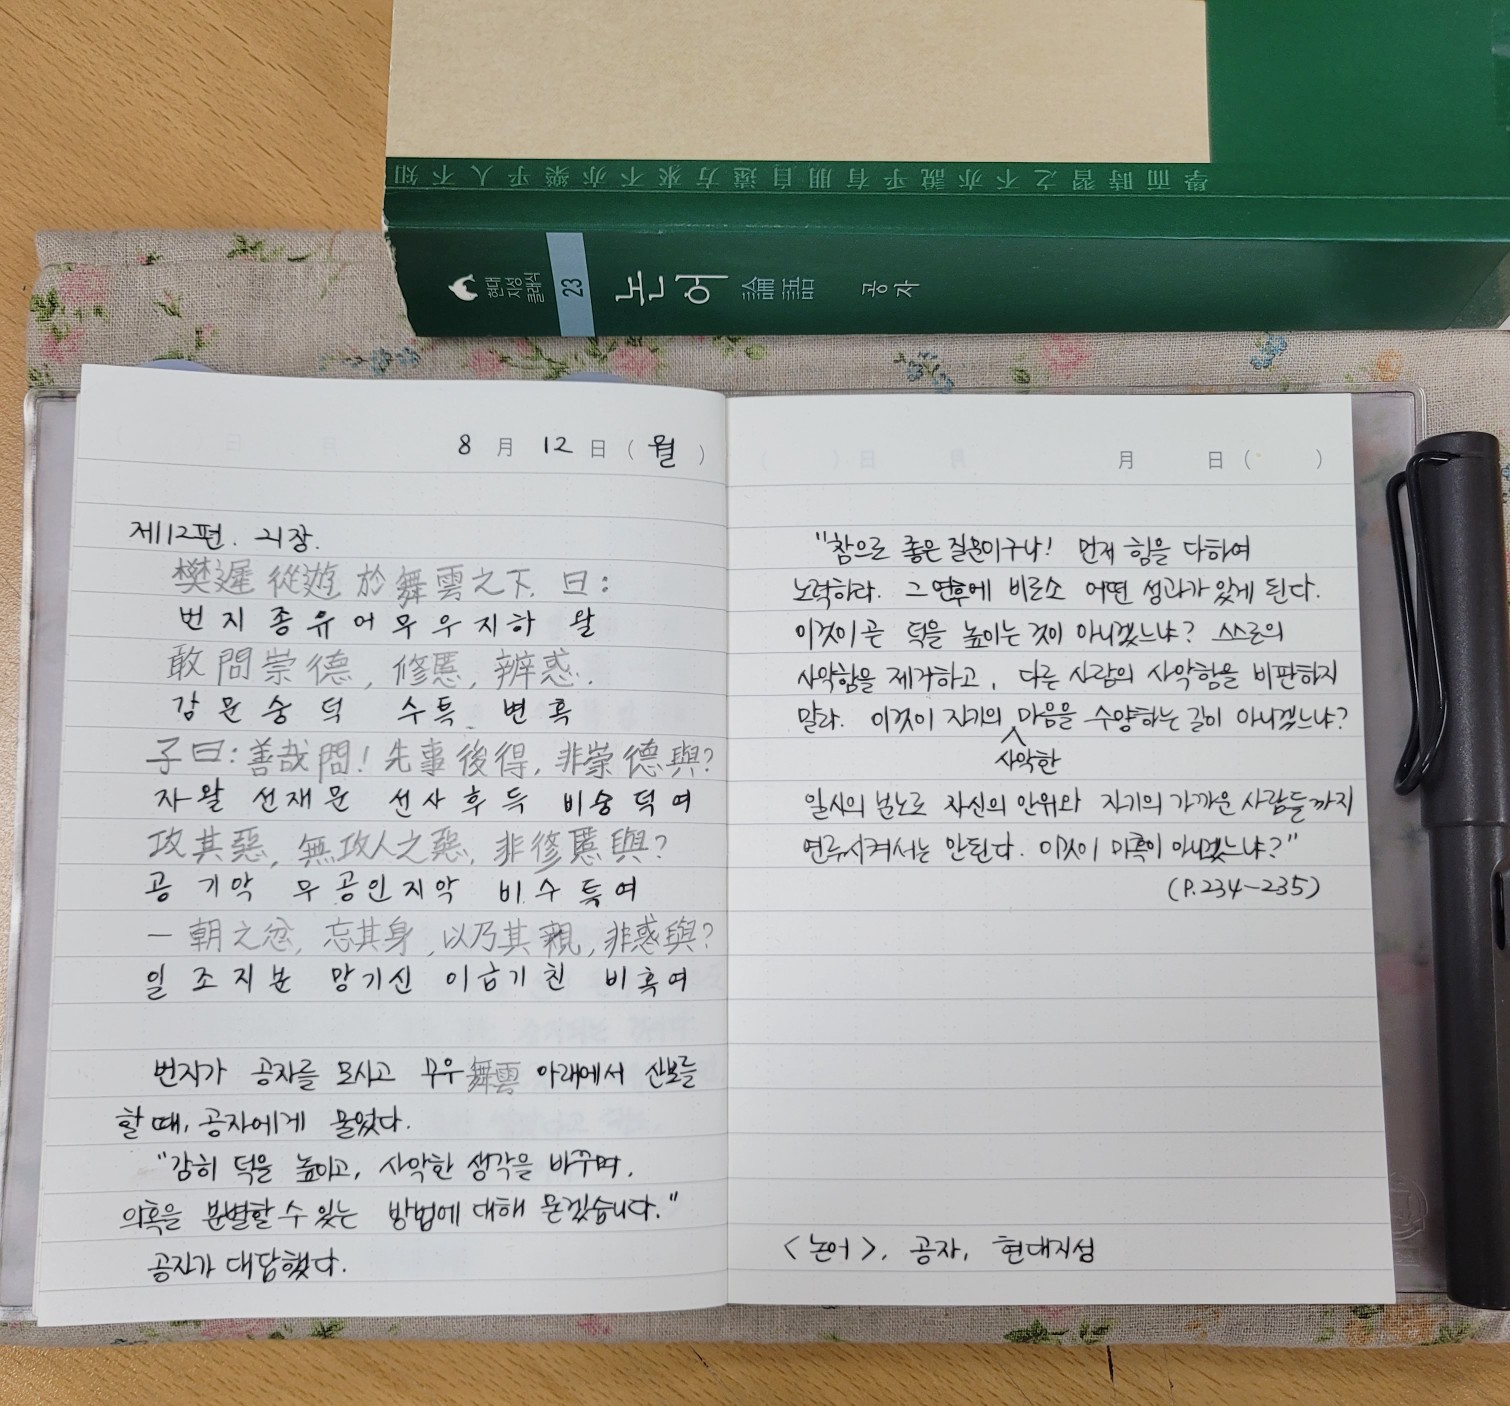 學而時習之不亦說乎有朋自遠方來不亦樂乎人不知
현대
지성
클래식
23
논어 論語 공자
8 月 12 日 ( 월 )
제12편. 21장.
樊遲從遊於舞雲之下. 曰:
번지종유어무우지하 왈
敢問崇德, 修慝, 辨惑.
감문숭덕 수특 변혹
子曰: 善哉問! 先事後得, 非崇德與?
자왈 선재문 선사후득 비숭덕여
攻其惡, 無攻人之惡, 非修慝與?
공기악 무공인지악 비수특여
一朝之忿, 忘其身, 以及其親, 非惑與?
일조지분 망기신 이급기친 비혹여
번지가 공자를 모시고 무우舞雲 아래에서 산보를
할 때, 공자에게 물었다.
"감히 덕을 높이고, 사악한 생각을 바꾸며,
의혹을 분별할 수 있는 방법에 대해 묻겠습니다."
공자가 대답했다.
月 日 ( )
"참으로 좋은 질문이구나! 먼저 힘을 다하여
노력하라. 그 연후에 비로소 어떤 성과가 있게 된다.
이것이 곧 덕을 높이는 것이 아니겠느냐? 스스로의
사악함을 제거하고, 다른 사람의 사악함을 비판하지
말라. 이것이 자기의 마음을 수양하는 길이 아니겠느냐?
사악한
일시의 분노로 자신의 안위와 자기의 가까운 사람들까지
연루시켜서는 안된다. 이것이 미혹이 아니겠느냐?"
(P.234-235)
<논어>, 공자, 현대지성